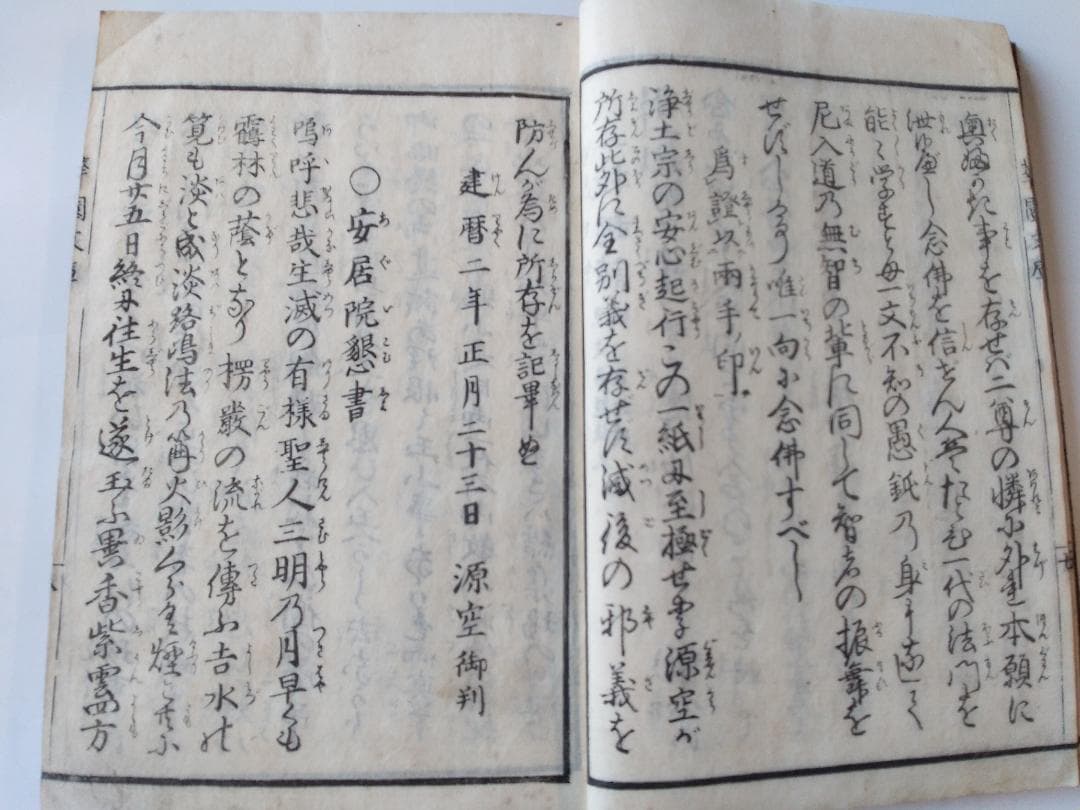 奥ふかき事を存せバ二尊の憐に外連本願に
泄ゆべし念佛を信せん人はたとひ一代の法門を
能〻学すとも一文不知の愚鈍乃身になして
尼入道乃無智の輩に同して智者の振舞を
せずしてたゞ唯一向に念佛すべし
為證以兩手印
浄土宗の安心起行この一紙に至極せり源空が
所存此外に全別義を存ぜず滅後の邪義を
防んが為に所存を記畢ぬ
建暦二年正月二十三日 源空御判
○安居院懇書
嗚呼悲哉生滅の有様聖人三明乃月早くも
鶴林の蔭となり楞嚴の流を傳ふ吉水の
筧も淡と成淡路嶋法乃篝火影くらく煙
今月廿五日終に往生を遂玉ふ異香紫雲四方